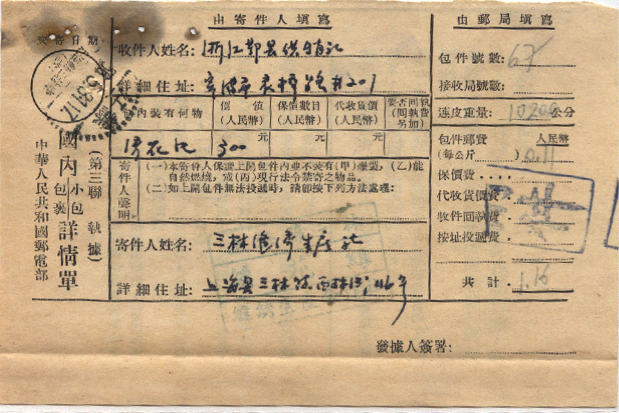 由寄件人填寫
由郵局填寫
交寄日期
收件人姓名:浙江鄞县供销社
詳細住址:
內裝有何物
價值
(人民幣)
保價數目
(人民幣)
代收貨價
(人民幣)
要否回執
(回執費
另加)
元
元
元
300
寄件人聲明
(一)本寄件人保證上開包件內並不裝有(甲)爆裂,(乙)能
自然燃燒,或(丙)現行法令禁寄之物品。
(二)如上開包件無法投遞時,請卽按下列方法處理:
寄件人姓名:三林
詳細住址:上海县三林
包件號數:67
接收局號數:
連皮重量:公分
包件郵費
(每公斤)
人民幣
保價費:
代收貨價費:
收件回執費
按址投遞費
共計:1.16
發據人簽署:
(第三聯 執據)
國內小包包裹詳情單
中華人民共和國郵電部